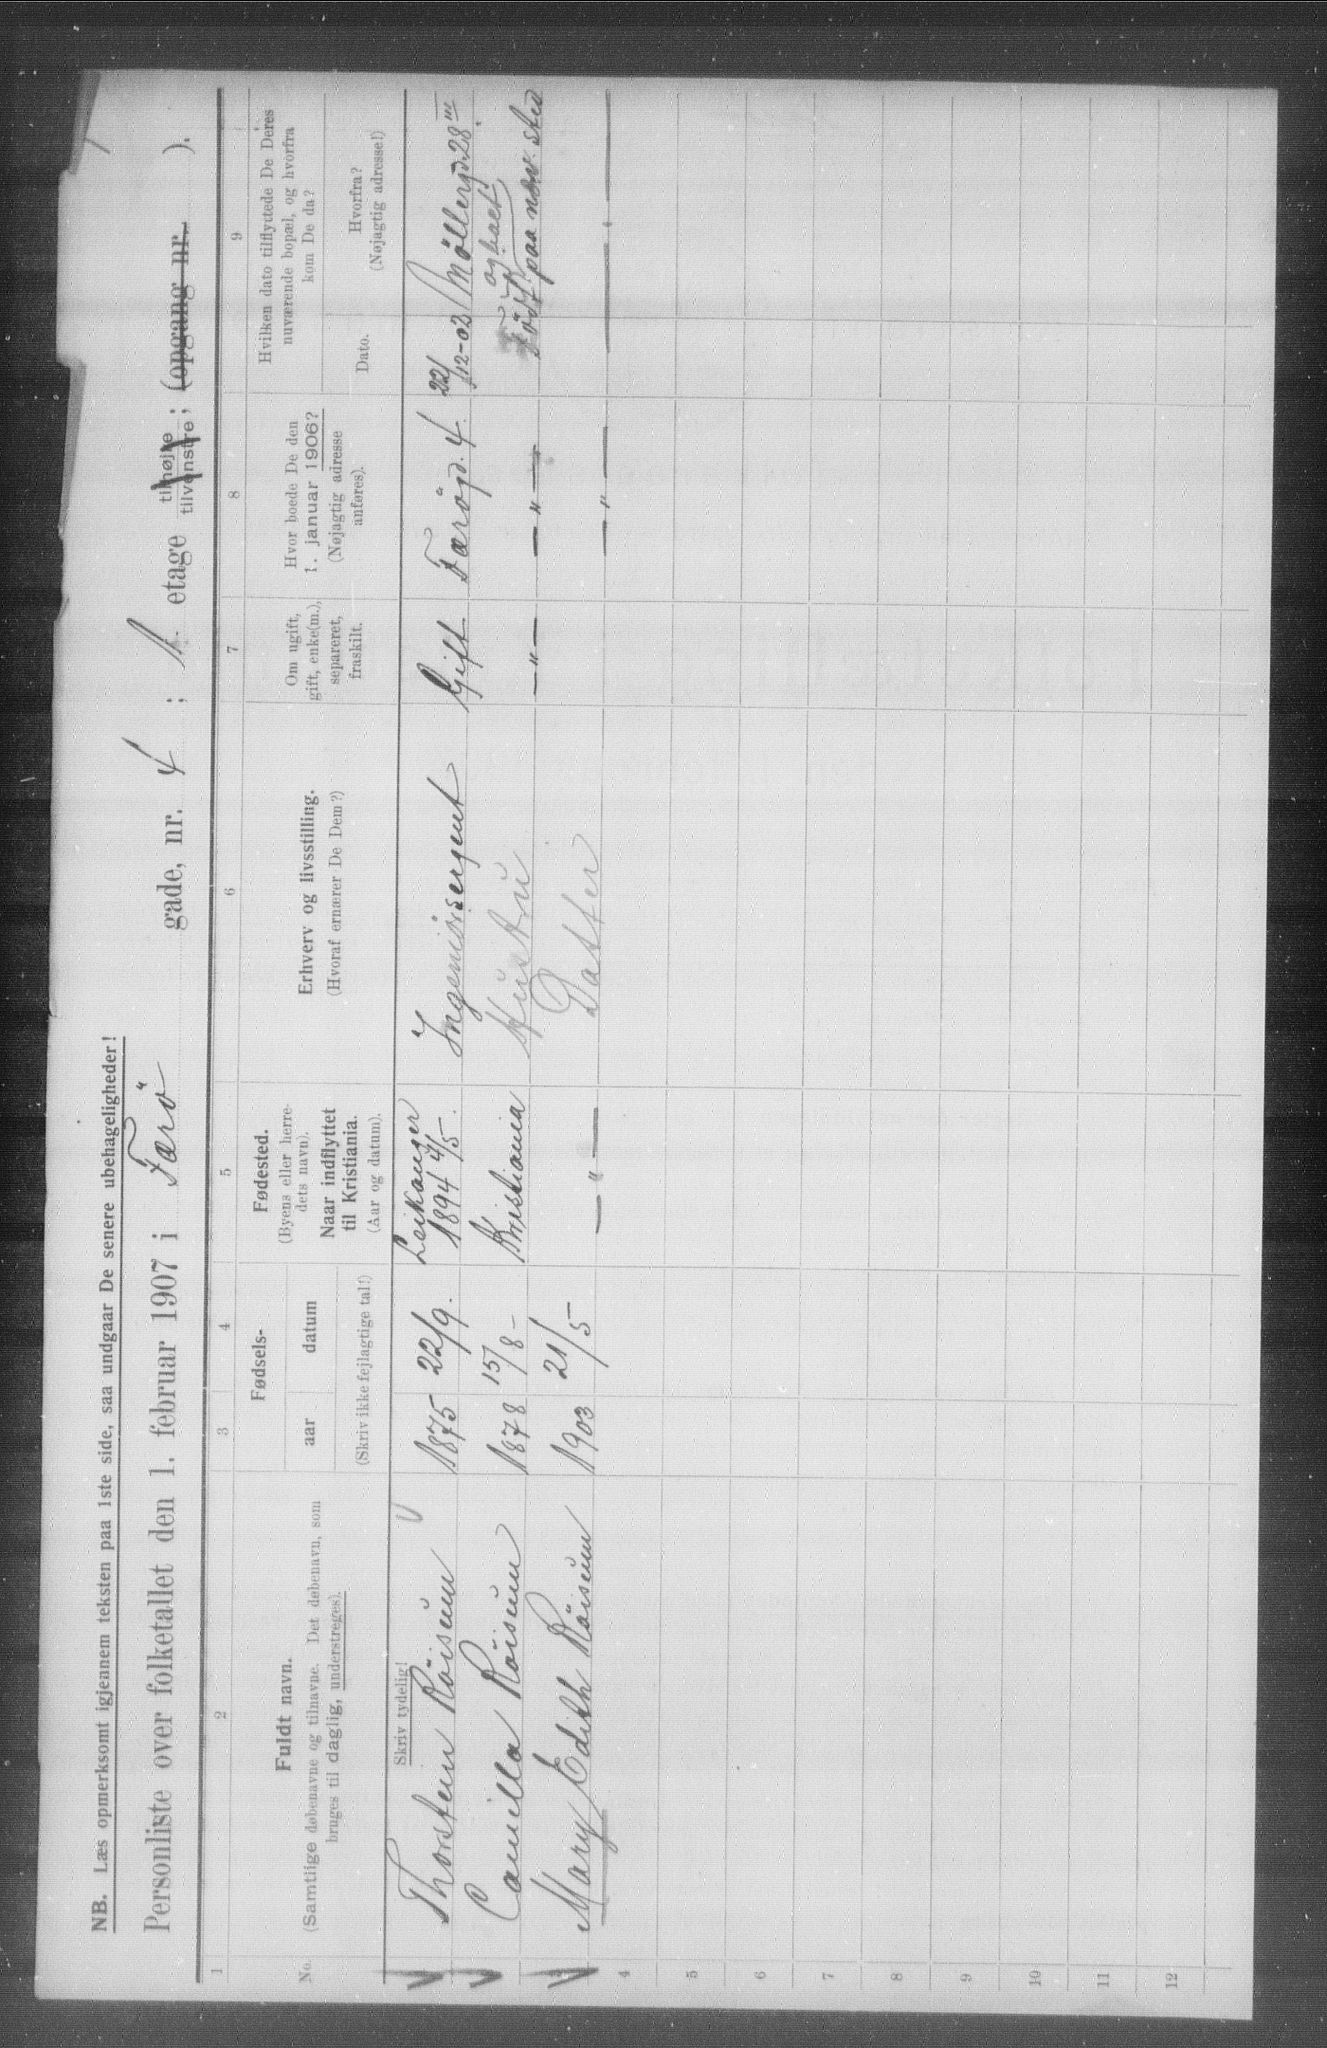 NB. Læs opmerksomt igjennem teksten paa 1ste side, saa undgaar De senere ubehageligheder!
Personliste over folketallet den 1. februar 1907 i Færö gade, nr. 4 ; 1. etage tilhøjre tilvenstre ; (opgang nr. ).
1 2 3 4 5 6 7 8 9
No.
Fuldt navn.
(Samtlige døbenavne og tilnavne. Det døbenavn, som
bruges til daglig, understreges).
Fødsels-
aar datum
(Skriv ikke fejlagtige tal!)
Fødested.
(Byens eller herre-
dets navn).
Naar indflyttet
til Kristiania.
(Aar og datum).
Erhverv og livsstilling.
(Hvoraf ernærer De Dem?)
Om ugift,
gift, enke(m.),
separeret,
fraskilt.
Hvor boede De den
1. januar 1906?
(Nøjagtig adresse
anføres).
Hvilken dato tilflyttede De Deres
nuværende bopæl, og hvorfra
kom De da?
Dato.
Hvorfra?
(Nøjagtig adresse!)
Skriv tydelig!
Thorstein Röisum 1875 22/9. Leikanger 1894 4/5. Ingeniörsergent Gift Færögd. 4. 22/12-02 Möllergd. 28 III
Camilla Röisum 1878 15/8 - Kristiania Hustru — " — — " —
Født og boet paa nov. sted
Mary Edith Röisum 1903 21/5 — " — Datter — " —
4
5
6
7
8
9
10
11
12